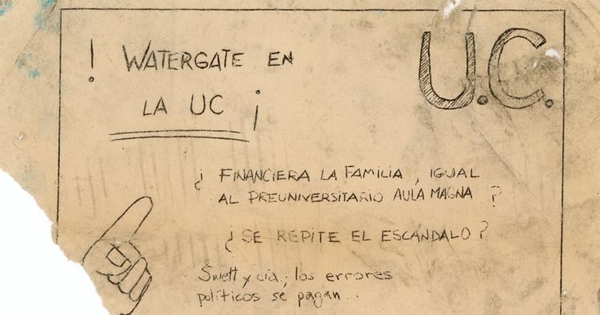 ! WATERGATE EN
LA UC ¡
U.C.
¿ FINANCIERA LA FAMILIA, IGUAL
AL PREUNIVERSITARIO AULA MAGNA ?
¿ SE REPITE EL ESCÁNDALO ?
Swett y cia.; los errores
políticos se pagan...